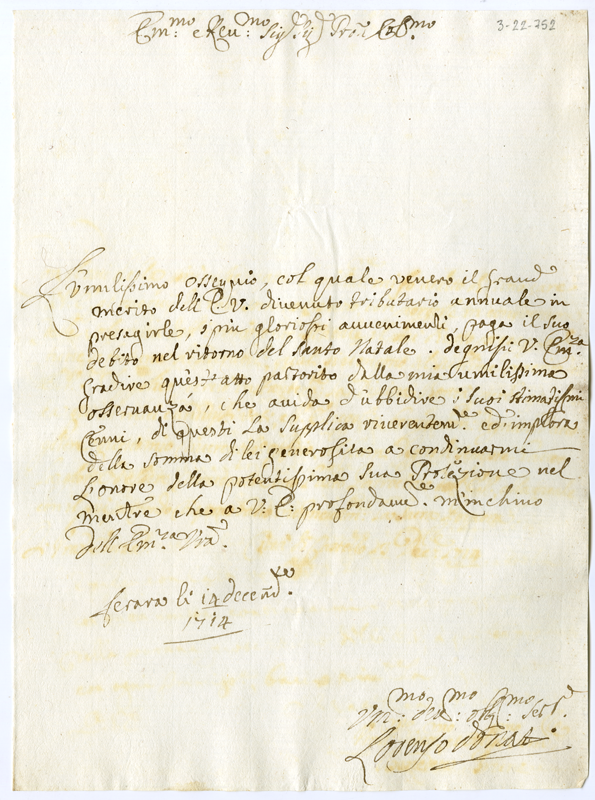 3-22-752
Em:mo e Reu:mo Sig.r Sig.r Pro:n Col:mo
L'vmilissimo osseqvio, col quale venero il grand
merito dell E.V. divenuto tributario annuale in
presagirle, i piu gloriosi avvenimenti, paga il suo
debito nel ritorno del Santo Natale. degnisi V. Em:za
gradire quest atto partorito dalla mia umilissima
osseruanza, che auida d'ubbidire i suoi stimatissimi
Cenni, di questi La supplica riverentem.te ed implora
della somma di lei generosita a continuarmi
L'onore della potentissima sua Protezione nel
mentre che a V: E: profondame.te m'inchino
dell Em:za Vra.
Ferara li 14 decem.re
1714
Vm:mo deu:mo obl:mo Ser.
Lorenzo